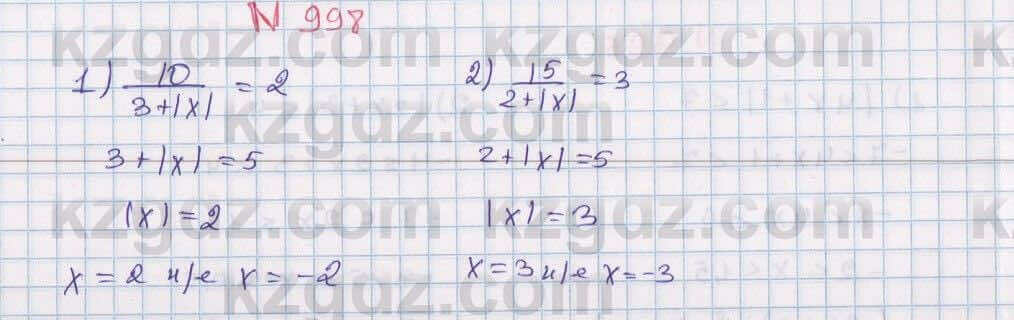 N 998
1) 10/(3+|x|) = 2
3+|x| = 5
|x| = 2
x = 2 н/е x = -2
2) 15/(2+|x|) = 3
2+|x| = 5
|x| = 3
x = 3 н/е x = -3
kzgdz.com kzgdz.com
kzgdz.com
kzgdz.com kzgdz.com
kzgdz.com